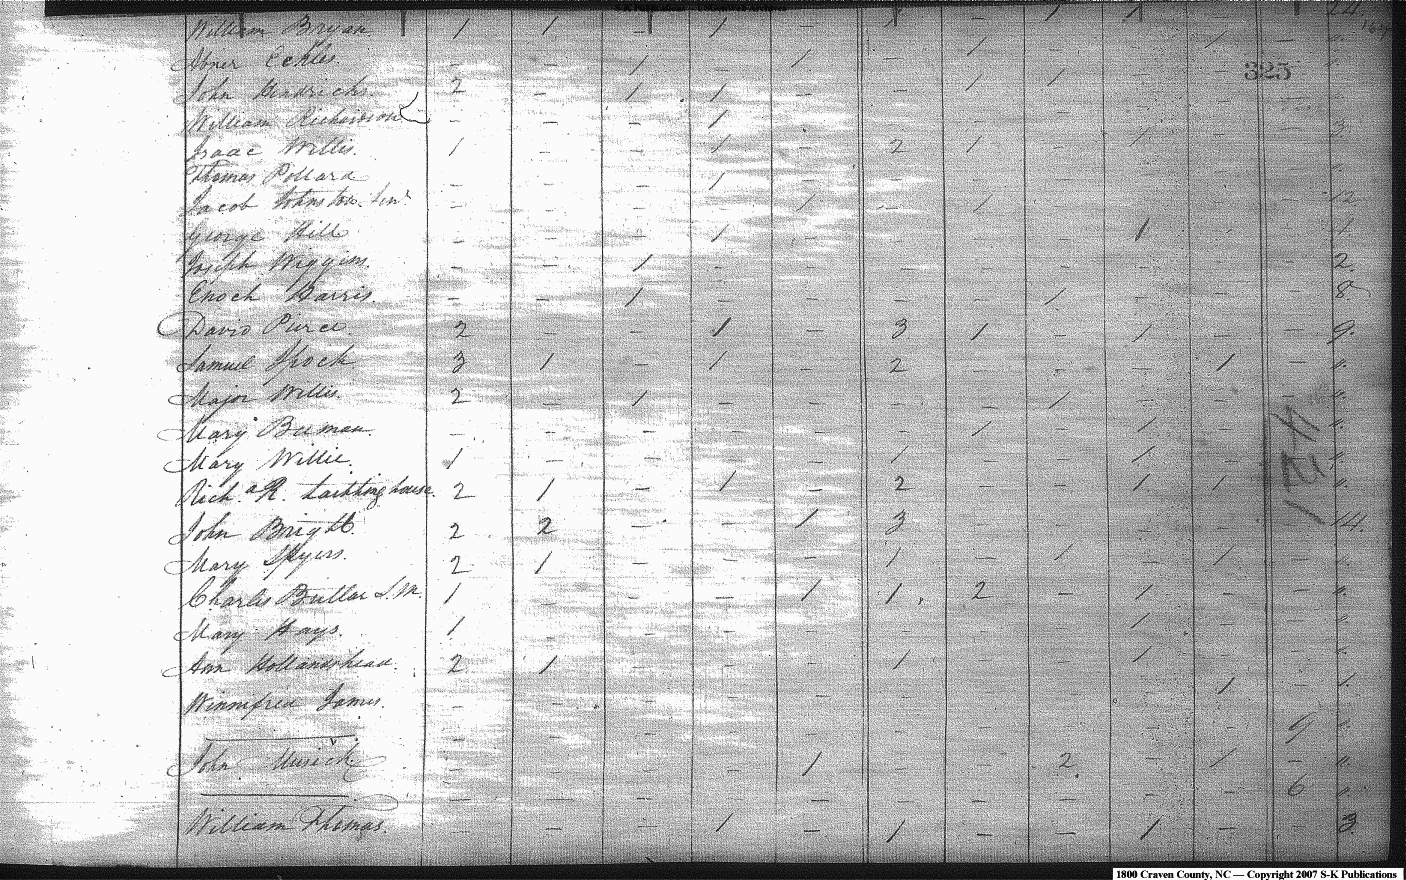 William Bryan 1 1 - 1 - 1 - 1 1 - - 24
Abner Eckles - - 1 - 1 - 1 - - 1 -
325
John Hendricks 2 - 1 1 - - 1 1 - - -
William Richardson - - - 1 - - - - - - - 3
Isaac Willis 1 - - 1 - 2 1 - 1 - -
Thomas Pollard - - - 1 - - - - - - -
Jacob Johnston Senr - - - - 1 - 1 - - - - 12
George Hill - - - 1 - - - - 1 - - 1
Joseph Wiggins - - 1 - - - - - - - - 2
Enoch Harris - - 1 - - - - 1 - - - 8
David Pierce 2 - - 1 - 3 1 - 1 - - 9
Samuel Spock 3 1 - 1 - 2 - - - 1 -
Major Willis 2 - 1 - - - - 1 - - -
Mary Beeman - - - - - - 1 - 1 - -
Mary Willis 1 - - - - 1 - - 1 - -
Richd R. Laithinghouse 2 1 - 1 - 2 - - 1 1 -
John Bright 2 2 - - 1 3 - - - - - 14
Mary Spyers 2 1 - - - 1 - 1 - 1 -
Charles Buttar S.M. 1 - - - 1 1 2 - 1 - -
Mary Hays 1 - - - - - - - 1 - -
Ann Hollandshead 2 1 - - - 1 - - 1 - -
Winnifred James - - - - - - - - - 1 - 1
John Musick - - - - 1 - - 2 - 1 -
6
William Thomas - - - 1 - 1 - - 1 - - 3
1800 Craven County, NC — Copyright 2007 S-K Publications